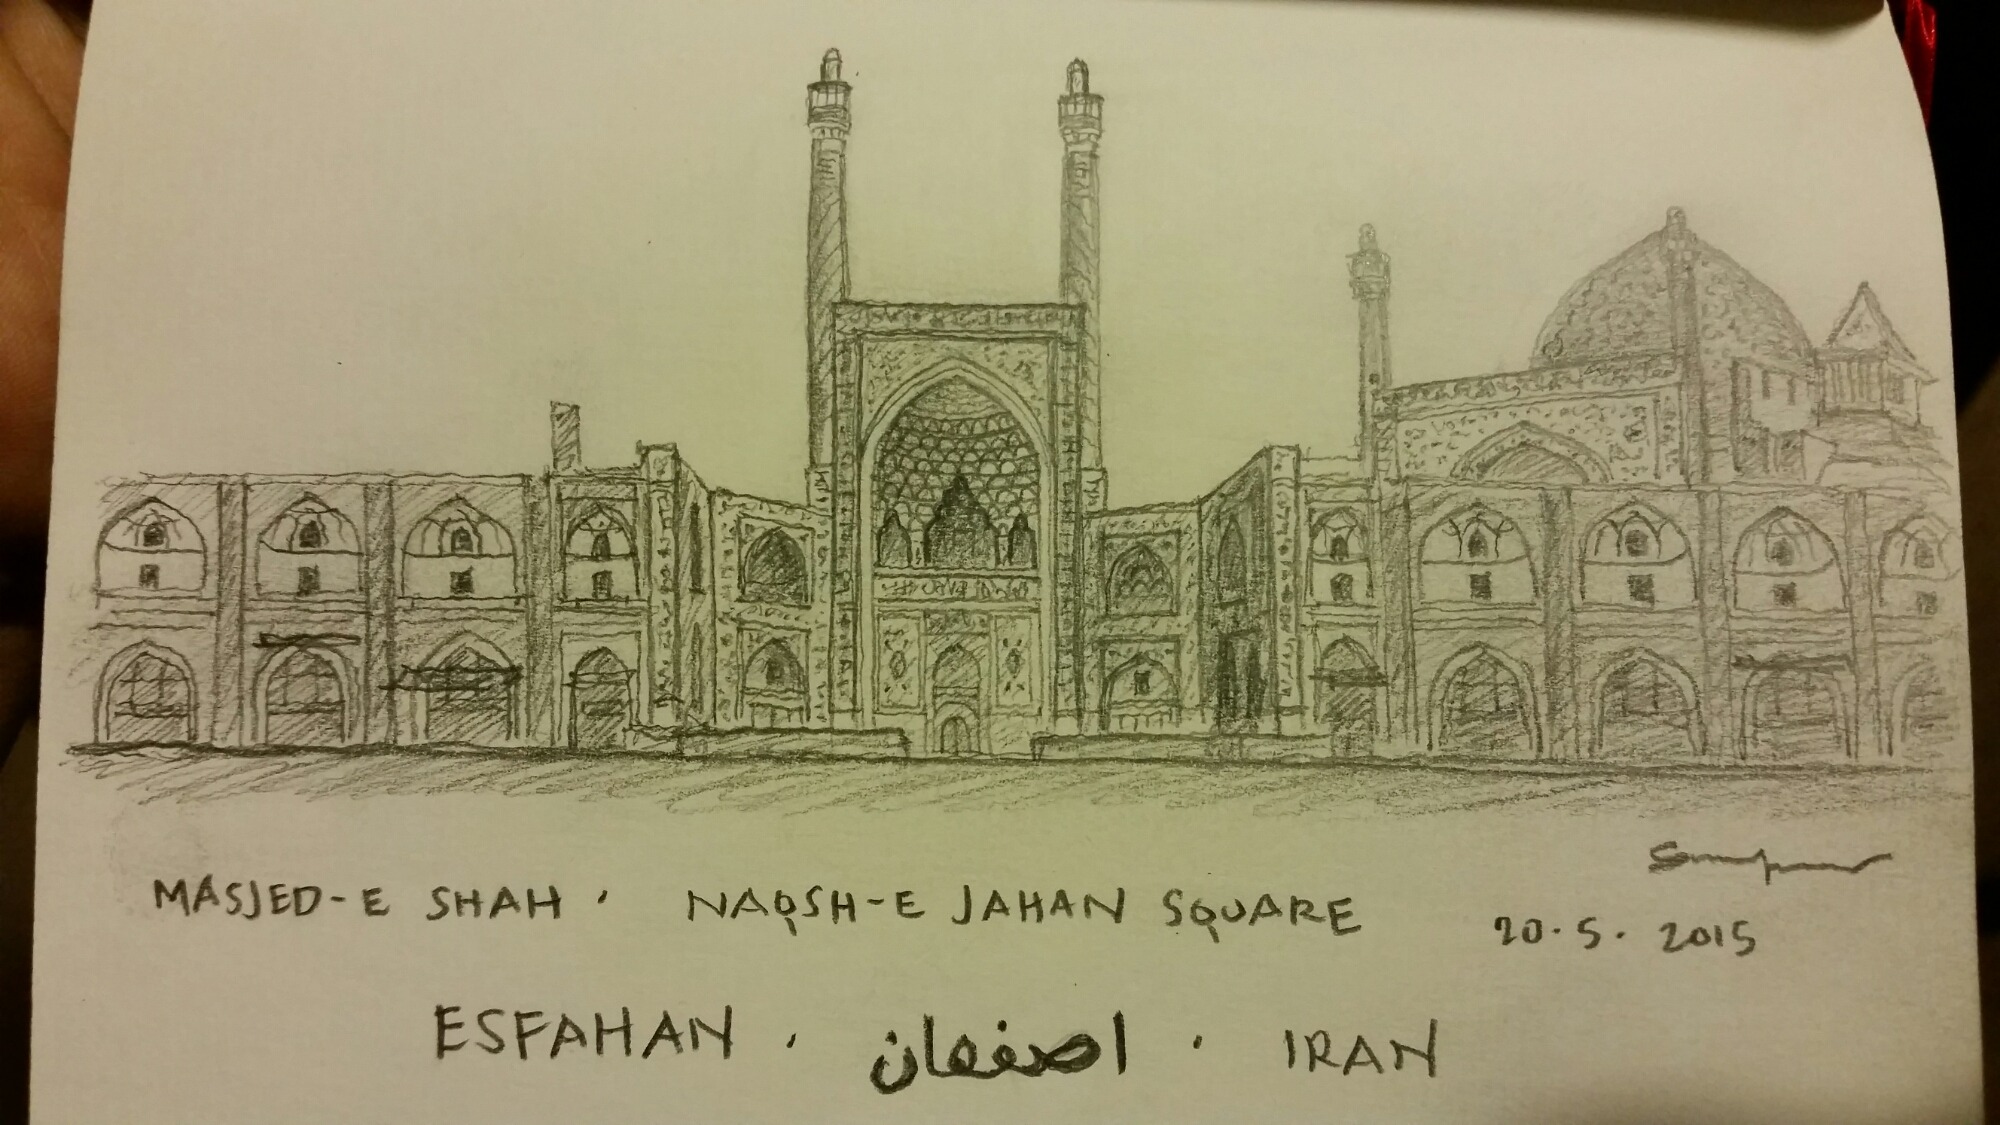 MASJED-E SHAH · NAQSH-E JAHAN SQUARE
20·5·2015
ESFAHAN · اصفهان · IRAN